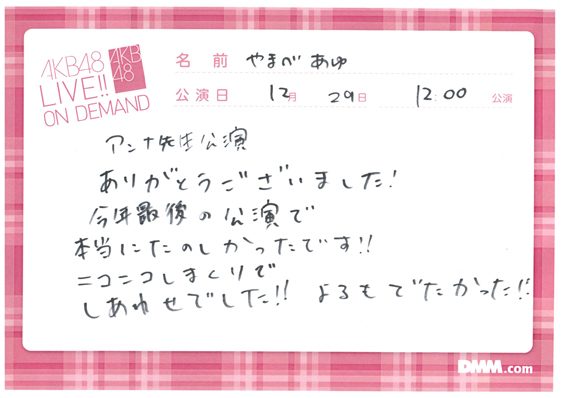 AKB48
LIVE!!
ON DEMAND
AKB
48
名前 やまべ あゆ
公演日 12月 29日 12:00 公演
アンナ先生公演
ありがとうございました!
今年最後の公演で
本当にたのしかったです!!
ニコニコしまくりで
しあわせでした!! よるもでたかった!!
DMM.com